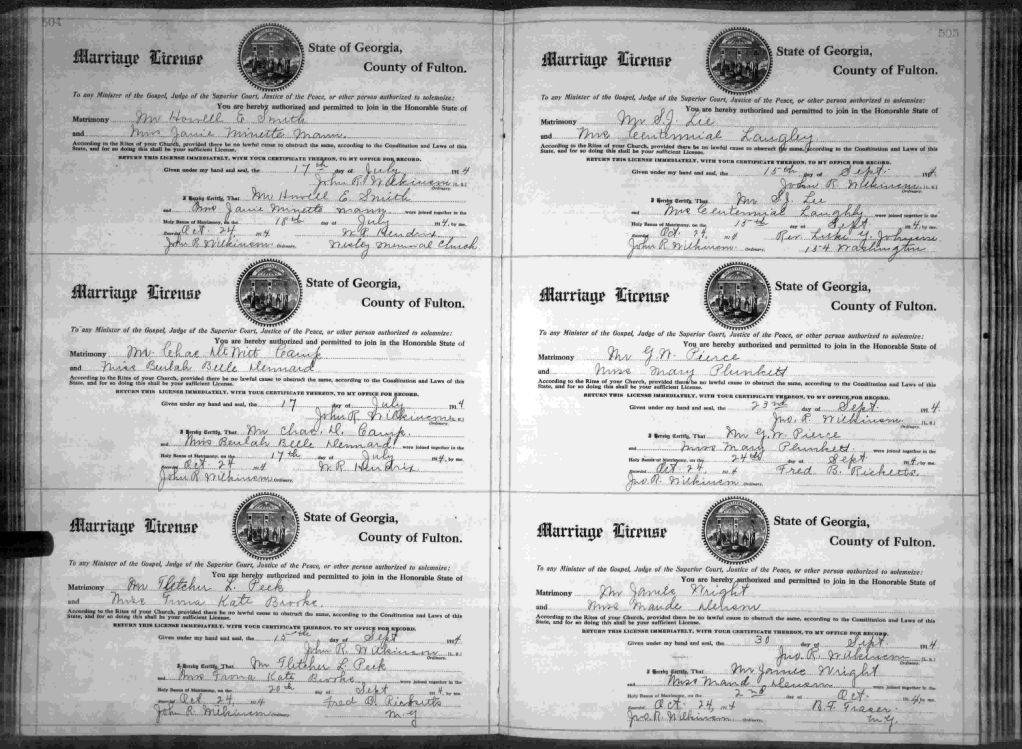 504
Marriage License
State of Georgia,
County of Fulton.
To any Minister of the Gospel, Judge of the Superior Court, Justice of the Peace, or other person authorized to solemnize:
You are hereby authorized and permitted to join in the Honorable State of
Matrimony Mr Howell E. Smith
and Miss Janie Minette Mann.
According to the Rites of your Church, provided there be no lawful cause to obstruct the same, according to the Constitution and Laws of this
State, and for so doing this shall be your sufficient License.
RETURN THIS LICENSE IMMEDIATELY, WITH YOUR CERTIFICATE THEREON, TO MY OFFICE FOR RECORD.
Given under my hand and seal, the 17th day of July 1914
John R. Wilkinson (L. S.)
Ordinary.
I Hereby Certify, That Mr Howell E. Smith
and Miss Janie Minette Mann were joined together in the
Holy Bonds of Matrimony, on the 18th day of July 1914, by me.
Recorded Oct. 24 1914 W. R. Hendrix
John R Wilkinson Ordinary. Wesley Memorial Church
Marriage License
State of Georgia,
County of Fulton.
To any Minister of the Gospel, Judge of the Superior Court, Justice of the Peace, or other person authorized to solemnize:
You are hereby authorized and permitted to join in the Honorable State of
Matrimony Mr. Chas DeWitt Camp
and Miss Beulah Belle Dennard.
According to the Rites of your Church, provided there be no lawful cause to obstruct the same, according to the Constitution and Laws of this
State, and for so doing this shall be your sufficient License.
RETURN THIS LICENSE IMMEDIATELY, WITH YOUR CERTIFICATE THEREON, TO MY OFFICE FOR RECORD.
Given under my hand and seal, the 17 day of July 1914
John R. Wilkinson (L. S.)
Ordinary.
I Hereby Certify, That Mr Chas. D. Camp.
and Miss Beulah Belle Dennard were joined together in the
Holy Bonds of Matrimony, on the 17th day of July 1914, by me.
Recorded Oct 24 1914 W. R. Hendrix
John R Wilkinson Ordinary.
Marriage License
State of Georgia,
County of Fulton.
To any Minister of the Gospel, Judge of the Superior Court, Justice of the Peace, or other person authorized to solemnize:
You are hereby authorized and permitted to join in the Honorable State of
Matrimony Mr Fletcher L. Peek
and Miss Kate Brooke.
According to the Rites of your Church, provided there be no lawful cause to obstruct the same, according to the Constitution and Laws of this
State, and for so doing this shall be your sufficient License.
RETURN THIS LICENSE IMMEDIATELY, WITH YOUR CERTIFICATE THEREON, TO MY OFFICE FOR RECORD.
Given under my hand and seal, the 15th day of Sept 1914
John R. Wilkinson (L. S.)
Ordinary.
I Hereby Certify, That Mr Fletcher L Peek
and Miss Kate Brooke were joined together in the
Holy Bonds of Matrimony, on the 20th day of Sept 1914, by me.
Recorded Oct 24, 1914 Fred B. Ricketts
John R. Wilkinson Ordinary. M G
505
Marriage License
State of Georgia,
County of Fulton.
To any Minister of the Gospel, Judge of the Superior Court, Justice of the Peace, or other person authorized to solemnize:
You are hereby authorized and permitted to join in the Honorable State of
Matrimony Mr S.J. Lee
and Mrs Centennial Langley
According to the Rites of your Church, provided there be no lawful cause to obstruct the same, according to the Constitution and Laws of this
State, and for so doing this shall be your sufficient License.
RETURN THIS LICENSE IMMEDIATELY, WITH YOUR CERTIFICATE THEREON, TO MY OFFICE FOR RECORD.
Given under my hand and seal, the 15th day of Sept. 1914
John R Wilkinson (L. S.)
Ordinary.
I Hereby Certify, That Mr S.J. Lee
and Mrs Centennial Langley were joined together in the
Holy Bonds of Matrimony, on the 15th day of Sept 1914, by me.
Recorded Oct. 24 1914 Rev. Luke G. Johnson
John R Wilkinson Ordinary. 154 Washington
Marriage License
State of Georgia,
County of Fulton.
To any Minister of the Gospel, Judge of the Superior Court, Justice of the Peace, or other person authorized to solemnize:
You are hereby authorized and permitted to join in the Honorable State of
Matrimony Mr G.W. Pierce
and Miss Mary Plunkett
According to the Rites of your Church, provided there be no lawful cause to obstruct the same, according to the Constitution and Laws of this
State, and for so doing this shall be your sufficient License.
RETURN THIS LICENSE IMMEDIATELY, WITH YOUR CERTIFICATE THEREON, TO MY OFFICE FOR RECORD.
Given under my hand and seal, the 23rd day of Sept. 1914
Jno. R. Wilkinson (L. S.)
Ordinary.
I Hereby Certify, That Mr G.W. Pierce
and Miss Mary Plunkett were joined together in the
Holy Bonds of Matrimony, on the 24th day of Sept 1914, by me.
Recorded Oct 24. 1914 Fred B. Ricketts
Jno. R. Wilkinson Ordinary.
Marriage License
State of Georgia,
County of Fulton.
To any Minister of the Gospel, Judge of the Superior Court, Justice of the Peace, or other person authorized to solemnize:
You are hereby authorized and permitted to join in the Honorable State of
Matrimony Mr Wright
and Miss Maude Denson
According to the Rites of your Church, provided there be no lawful cause to obstruct the same, according to the Constitution and Laws of this
State, and for so doing this shall be your sufficient License.
RETURN THIS LICENSE IMMEDIATELY, WITH YOUR CERTIFICATE THEREON, TO MY OFFICE FOR RECORD.
Given under my hand and seal, the 30 day of Sept 1914
Jno. R. Wilkinson (L. S.)
Ordinary.
I Hereby Certify, That Mr Jamie Wright
and Miss Maud Denson were joined together in the
Holy Bonds of Matrimony, on the 2nd day of Oct. 1914, by me.
Recorded Oct. 24, 1914 B. F. Fraser
Jno. R. Wilkinson Ordinary. M.G.